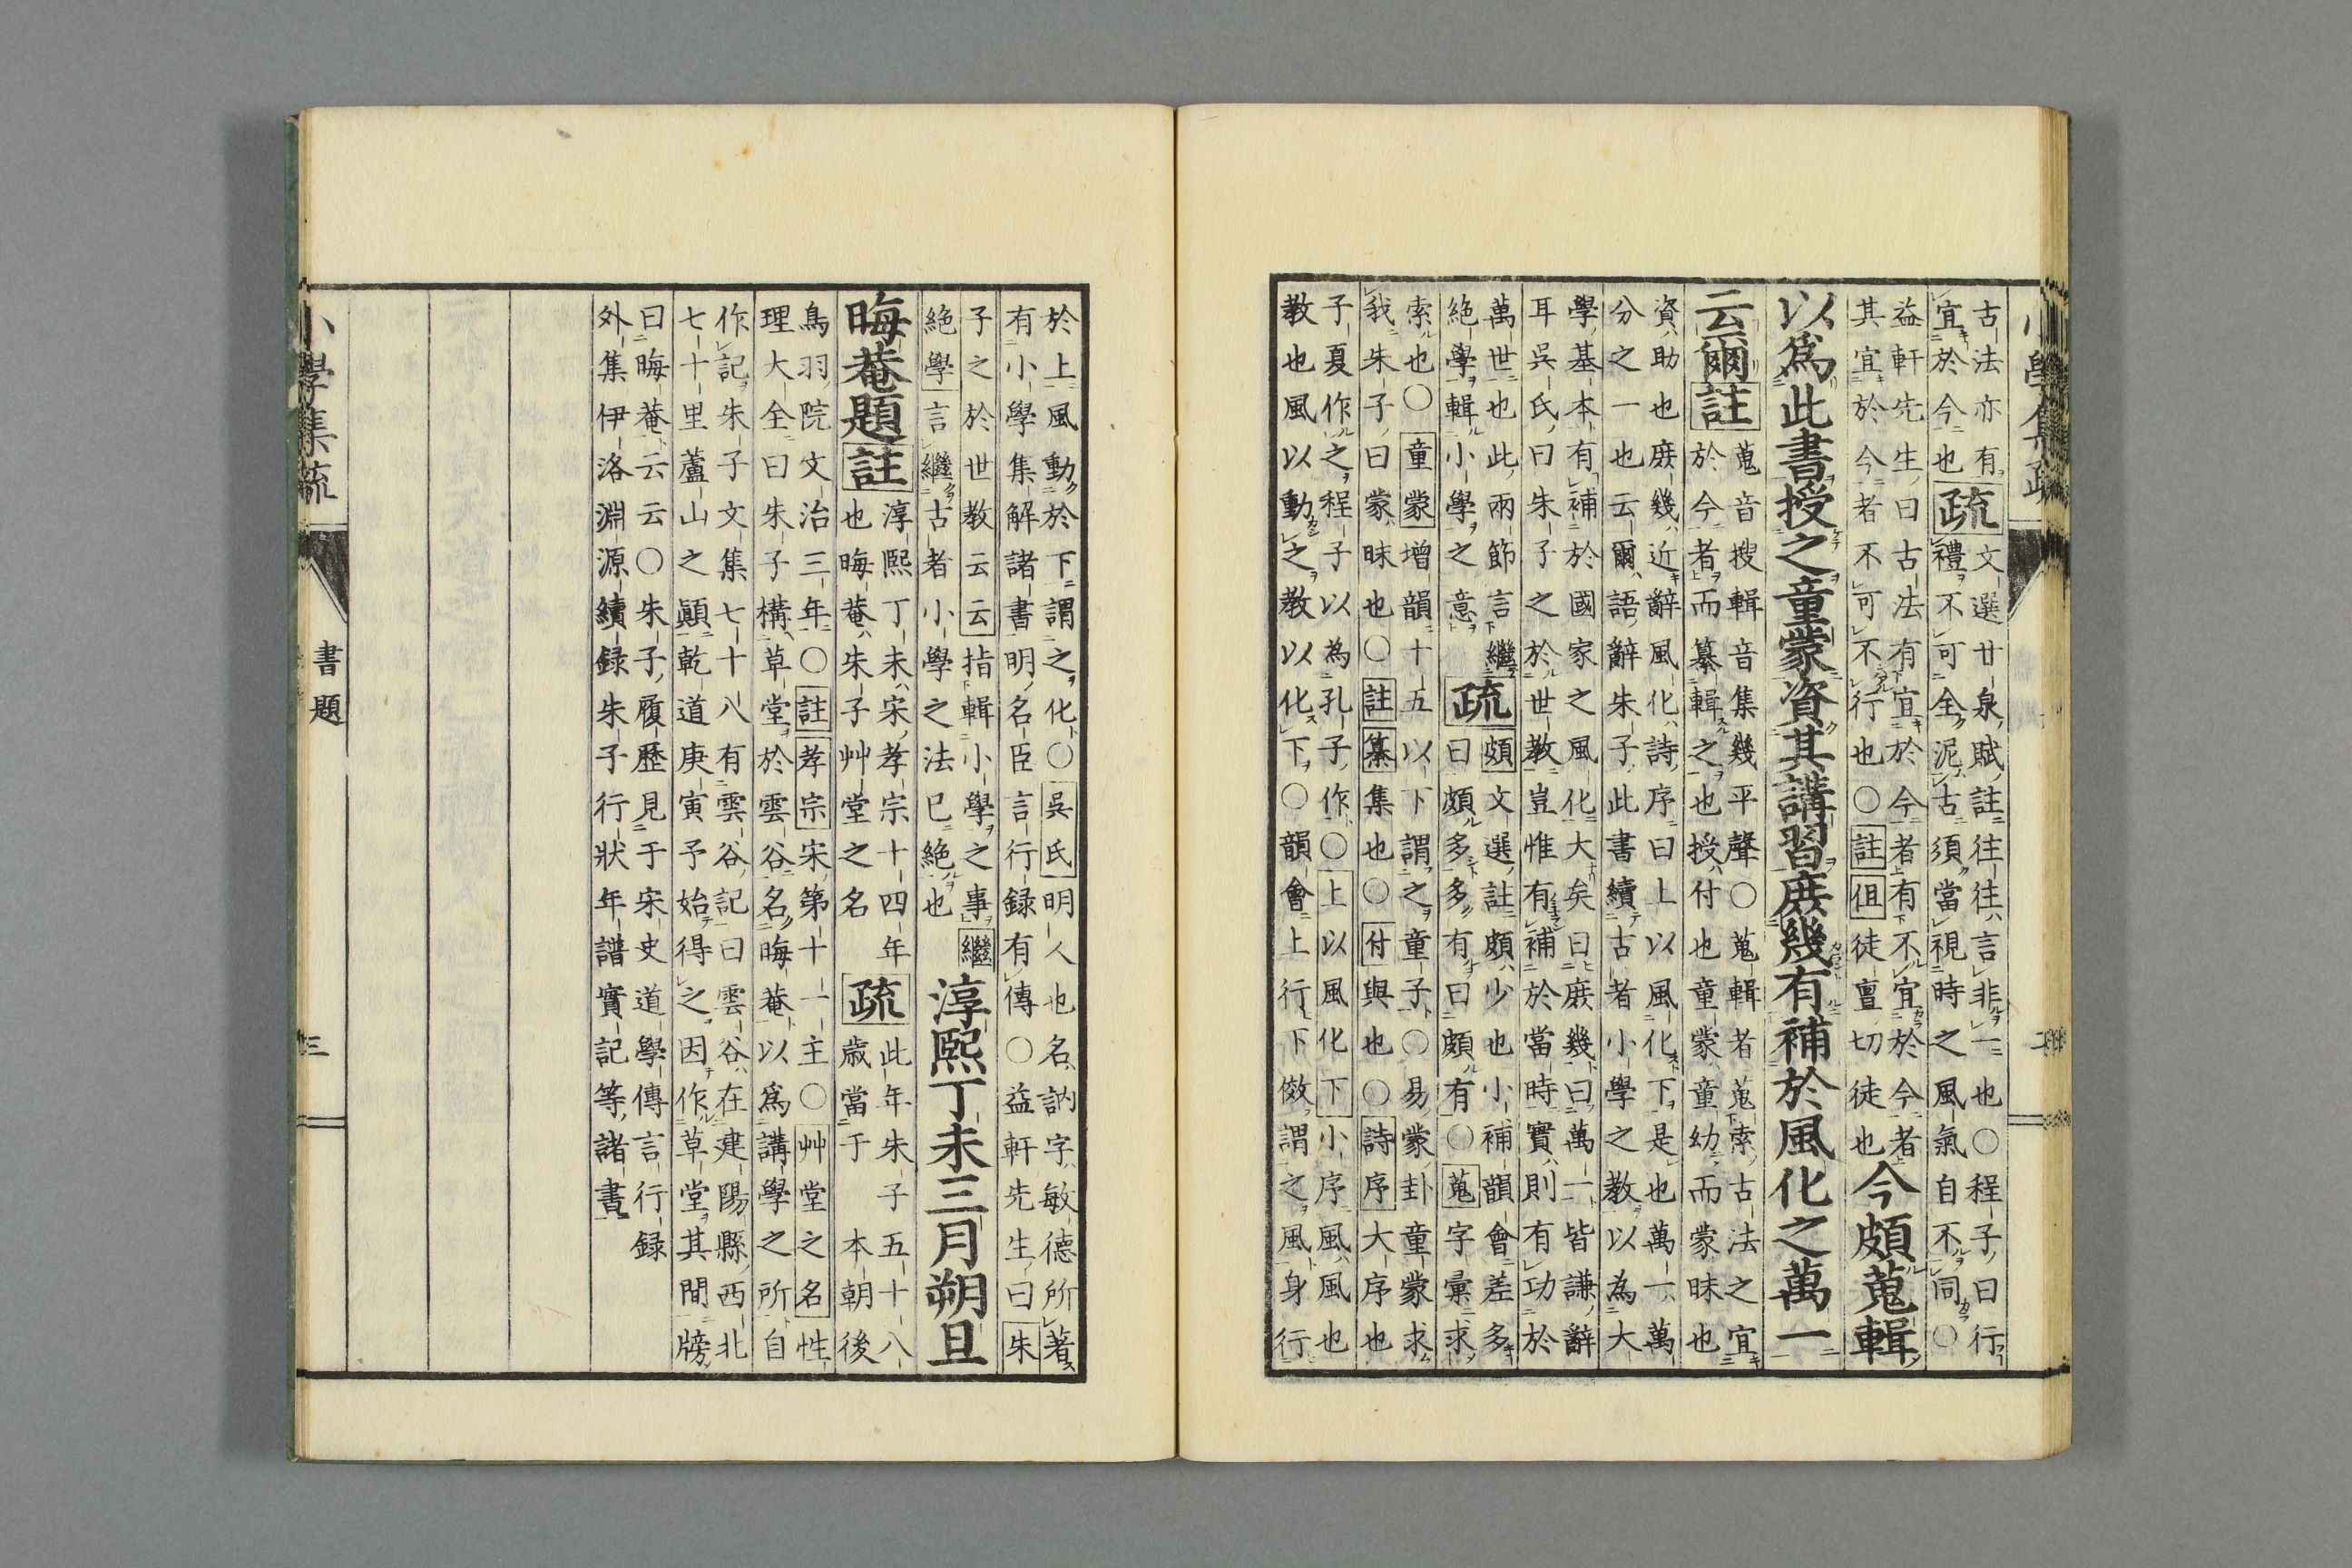 古法亦有疏文選廿泉賦註往往言非一也〇程子曰行
宜於今也疏禮不可全泥古須當視時之風氣自不同〇
益軒先生曰古法有宜於今者有不宜於今者
其宜於今者不可不行也〇註但徒亶切徒也
今頗蒐輯
以爲此書授之童蒙資其講習庶幾有補於風化之萬一
云爾註
蒐音搜輯音集幾平聲〇蒐輯者蒐索古法之宜
於今者而纂輯之也授付也童蒙童幼而蒙昧也
資助也庶幾近辭風化詩序曰上以風化下是也萬一萬
分之一也云爾語辭朱子此書續古者小學之教以為大
學基本有補於國家之風化大矣曰庶幾曰萬一皆謙辭
耳吳氏曰朱子之於世教豈惟有補於當時實則有功於
萬世也此兩節言繼
絕學輯小學之意
疏
頗文選註頗少也小補韻會差多
曰頗多多有曰頗有〇蒐字彙求
索也〇童蒙增韻十五以下謂之童子〇易蒙卦童蒙求
我朱子曰蒙昧也〇註纂集也〇付與也〇詩序大序也
子夏作之程子以為孔子作〇上以風化下小序風風也
教也風以動之教以化下〇韻會上行下傚謂之風身行
於上風動於下謂之化〇吳氏明人也名訥字敏德所著
有小學集解諸書明名臣言行録有傳〇益軒先生曰朱
子之於世教云云指輯小學之事繼
絕學言繼古者小學之法已絕也
淳熙丁未三月朔旦
晦菴題註
淳熙丁未宋孝宗十四年
也晦菴朱子艸堂之名
疏
此年朱子五十八
歲當于本朝後
鳥羽院文治三年〇註孝宗宋第十一主〇艸堂之名性
理大全曰朱子構草堂於雲谷名晦菴以爲講學之所自
作記朱子文集七十八有雲谷記曰雲谷在建陽縣西北
七十里蘆山之顚乾道庚寅予始得之因作草堂其間牓
曰晦菴云云〇朱子履歷見于宋史道學傳言行録
外集伊洛淵源續録朱子行狀年譜實記等諸書
小學集疏
書題
三